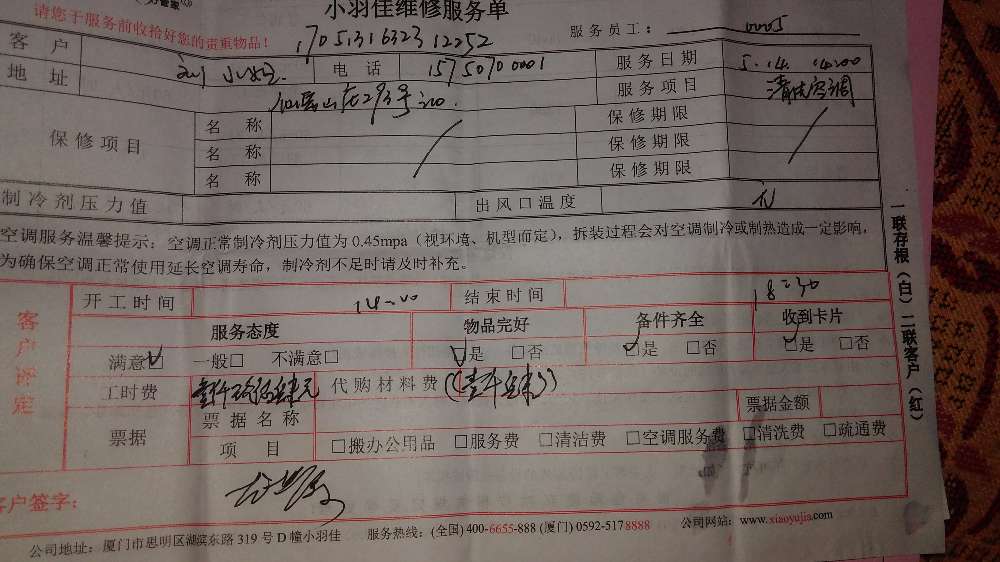 请您于服务前收拾好您的贵重物品！
小羽佳维修服务单
170513163231 2252
服务员工： 0005
客户 刘小姐 电话 15750700001 服务日期 5.14. 14:00
地址 服务项目 清洗空调
保修项目 名称 保修期限
名称 保修期限
名称 保修期限
制冷剂压力值 出风口温度
空调服务温馨提示：空调正常制冷剂压力值为0.45mpa（视环境、机型而定），拆装过程会对空调制冷或制热造成一定影响，
为确保空调正常使用延长空调寿命，制冷剂不足时请及时补充。
客户评定
开工时间 14:00 结束时间 18:30
服务态度 物品完好 备件齐全 收到卡片
满意□ 一般□ 不满意□ □是 □否 □是 □否 □是 □否
工时费 代购材料费
票据 票据名称 票据金额
项目 □搬办公用品 □服务费 □清洁费 □空调服务费 □清洗费 □疏通费
客户签字：
公司地址：厦门市思明区湖滨东路319号D幢小羽佳 服务热线：(全国) 400-6655-888 (厦门) 0592-5178888 公司网站：www.xiaoyujia.com
一联存根（白）二联客户（红）